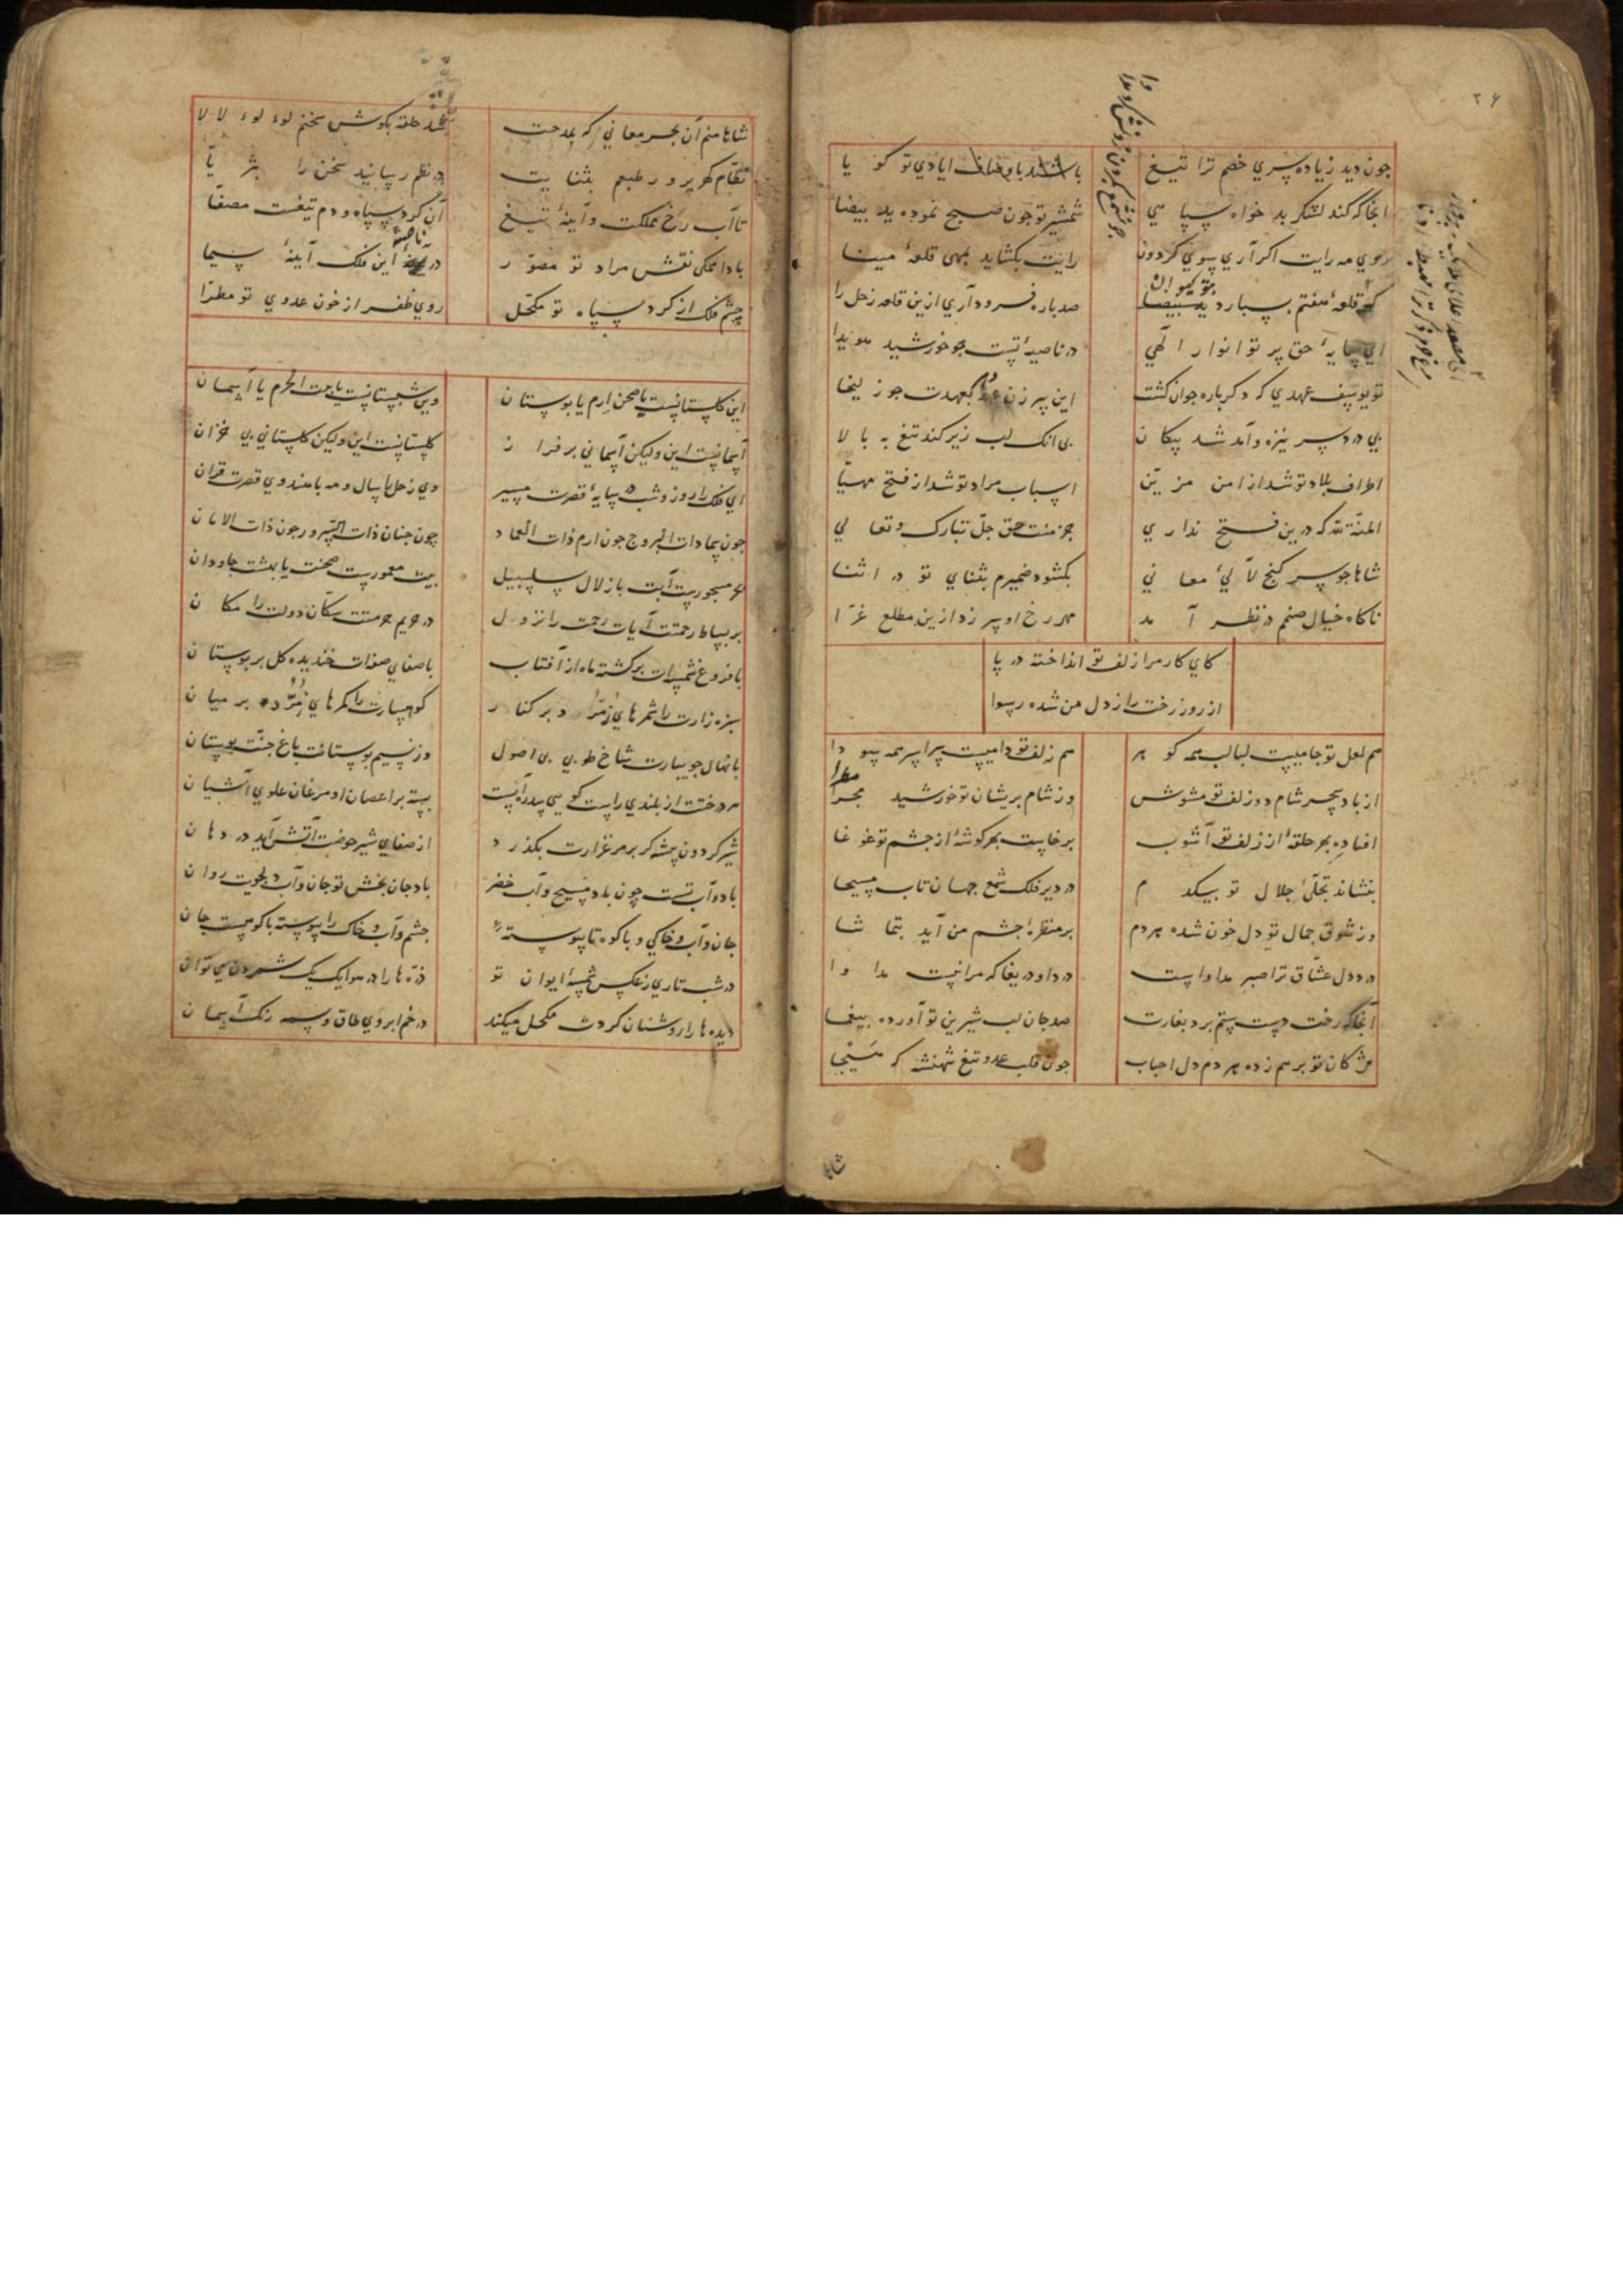 ۲۶
جون دید زیاده سری خصم ترا تیغ باشند با وصاف ایادی تو گو یا
انجا که کند لشکر بد خواه سپا هی شمشیر تو جون صبح نموده ید بیضا
روی مه رایت اگر آری بسوی گردون رایت بگشاید بمهی قلعهٔ مینا
قلعهٔ هفتم بسپارد صد باره فرود آری ازین قلعه زحل را
ای سایهٔ حق بر تو انوار الهی در ناصیهٔ تست جو خورشید هویدا
تو یوسف عهدی که دگرباره جوان گشت این پیر زن بعهدت جو زلیخا
بی دردسر نیزه و آمد شد پیکان بی انک لب زیر کند تیغ به بالا
اطراف بلاد تو شد از امن مزین اسباب مراد تو شد از فتح مهیّا
المنّة لله که درین فتح نداری جز منت حق جلّ تبارک و تعالی
شاها جو سر گنج لآلیٔ معانی بکشود ضمیرم بثنای تو در اثنا
ناگاه خیال صنمم در نظر آمد مهر رخ او سر زد ازین مطلع غرّا
کای کار مرا زلف تو انداخته در پا
از روز رخت راز دل من شده رسوا
هم لعل تو جامیست لبالب همه گوهر هم زلف تو دامیست سراسر همه سودا
از باد سحر شام دو زلف تو مشوش وز شام پریشان تو خورشید
افتاده بهر حلقهٔ از زلف تو آشوب برخاست بهر گوشهٔ از جشم تو غوغا
بنشاند تجلّیٔ جلال تو بیکدم در دیر فلک شمع جهان تاب مسیحا
وز شوق جمال تو دل خون شده هردم بر منظرهٔ جشم من آید بتماشا
درد دل عشّاق ترا صبر مداواست دردا و دریغا که مرا نیست مداوا
آنجا که رخت دست ستم برد بغارت صد جان لب شیرین تو آورده بیغما
مژگان تو برهم زده هردم دل احباب جون قلب عدو تیغ شهنشه که هیجا
شاها
شاها منم آن بحر معانی که بمدحت حلقه بکوش سخنم لوء لوء لالا
نظّام گهر پرور طبعم بثنایت در نظم رسانید سخن را بثریّا
تا آب رخ مملکت و آینهٔ تیغ آن گرد سپاه و دم تیغت مصفّا
بادا همگی نقش مراد تو مصوّر در ناصیهٔ این فلک آینهٔ سیما
چشم فلک از گرد سپاه تو مکحّل روی ظفر از خون عدوی تو مطرّا
این گلستانست یا صحن ارم یا بوستان وین شبستانست یا بیت الحرم یا آسمان
آسمانست این ولیکن آسمانی برفراز گلستانست این ولیکن گلستانی بی خزان
ای فلک را روز و شب در سایهٔ قصرت مسیر وی زحل را سال و مه با هندوی قصرت قران
جون سما ذات البروج جون ارم ذات العماد چون جنان ذات السّرور جون ذات الامان
بحر مسجورست آبت با زلال سلسبیل بیت معمورست صحنت یا بهشت جاودان
بر بساط رحمتت آیات رحمت را نزول در حریم حرمتت سکّان دولت را مکان
با فروغ شمسه‌ات برگشته ماه از آفتاب با صفای صفه‌ات خندیده گل بر بوستان
سبزه زارت را ثمرهای زمرّد بر کنار کوهسارت را کمرهای زمرّد بر میان
با نهال جویبارت شاخ طوبی بی اصول وز نسیم بوستانت باغ جنّت بوستان
هر درختت از بلندی راست گویی سدره‌ایست بسته بر اغصان او مرغان علوی آشیان
شیر گردون بیشه گر بر مرغزارت بگذرد از صفای شیر حوضت آتش آید در دهان
باد و آب تست چون باد مسیح و آب خضر باد جان بخش تو جان و آب دلجویت روان
جان و آب و خاکی و با کوه تا پیوسته جشم و آب و خاک را پیوسته با کویست جان
در شب تاری ز عکس شمسهٔ ایوان تو ذرّه‌ها را در هوا یک یک شمردن می توان
دیده‌ها را روشنان گردت مکحل میکند در خم ابروی طاق وسمه رنگ آسمان